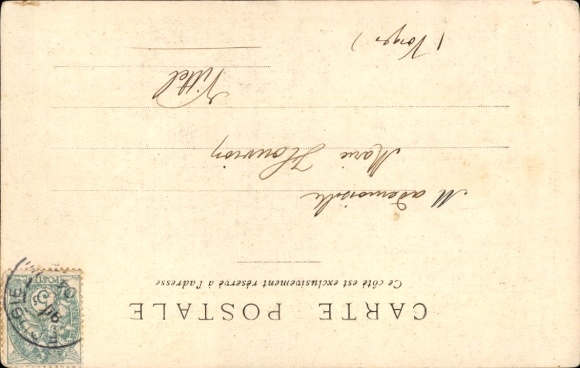 CARTE POSTALE
Ce côté est exclusivement réservé à l'adresse
Mademoiselle
Marie
Vittel
(Vosges)